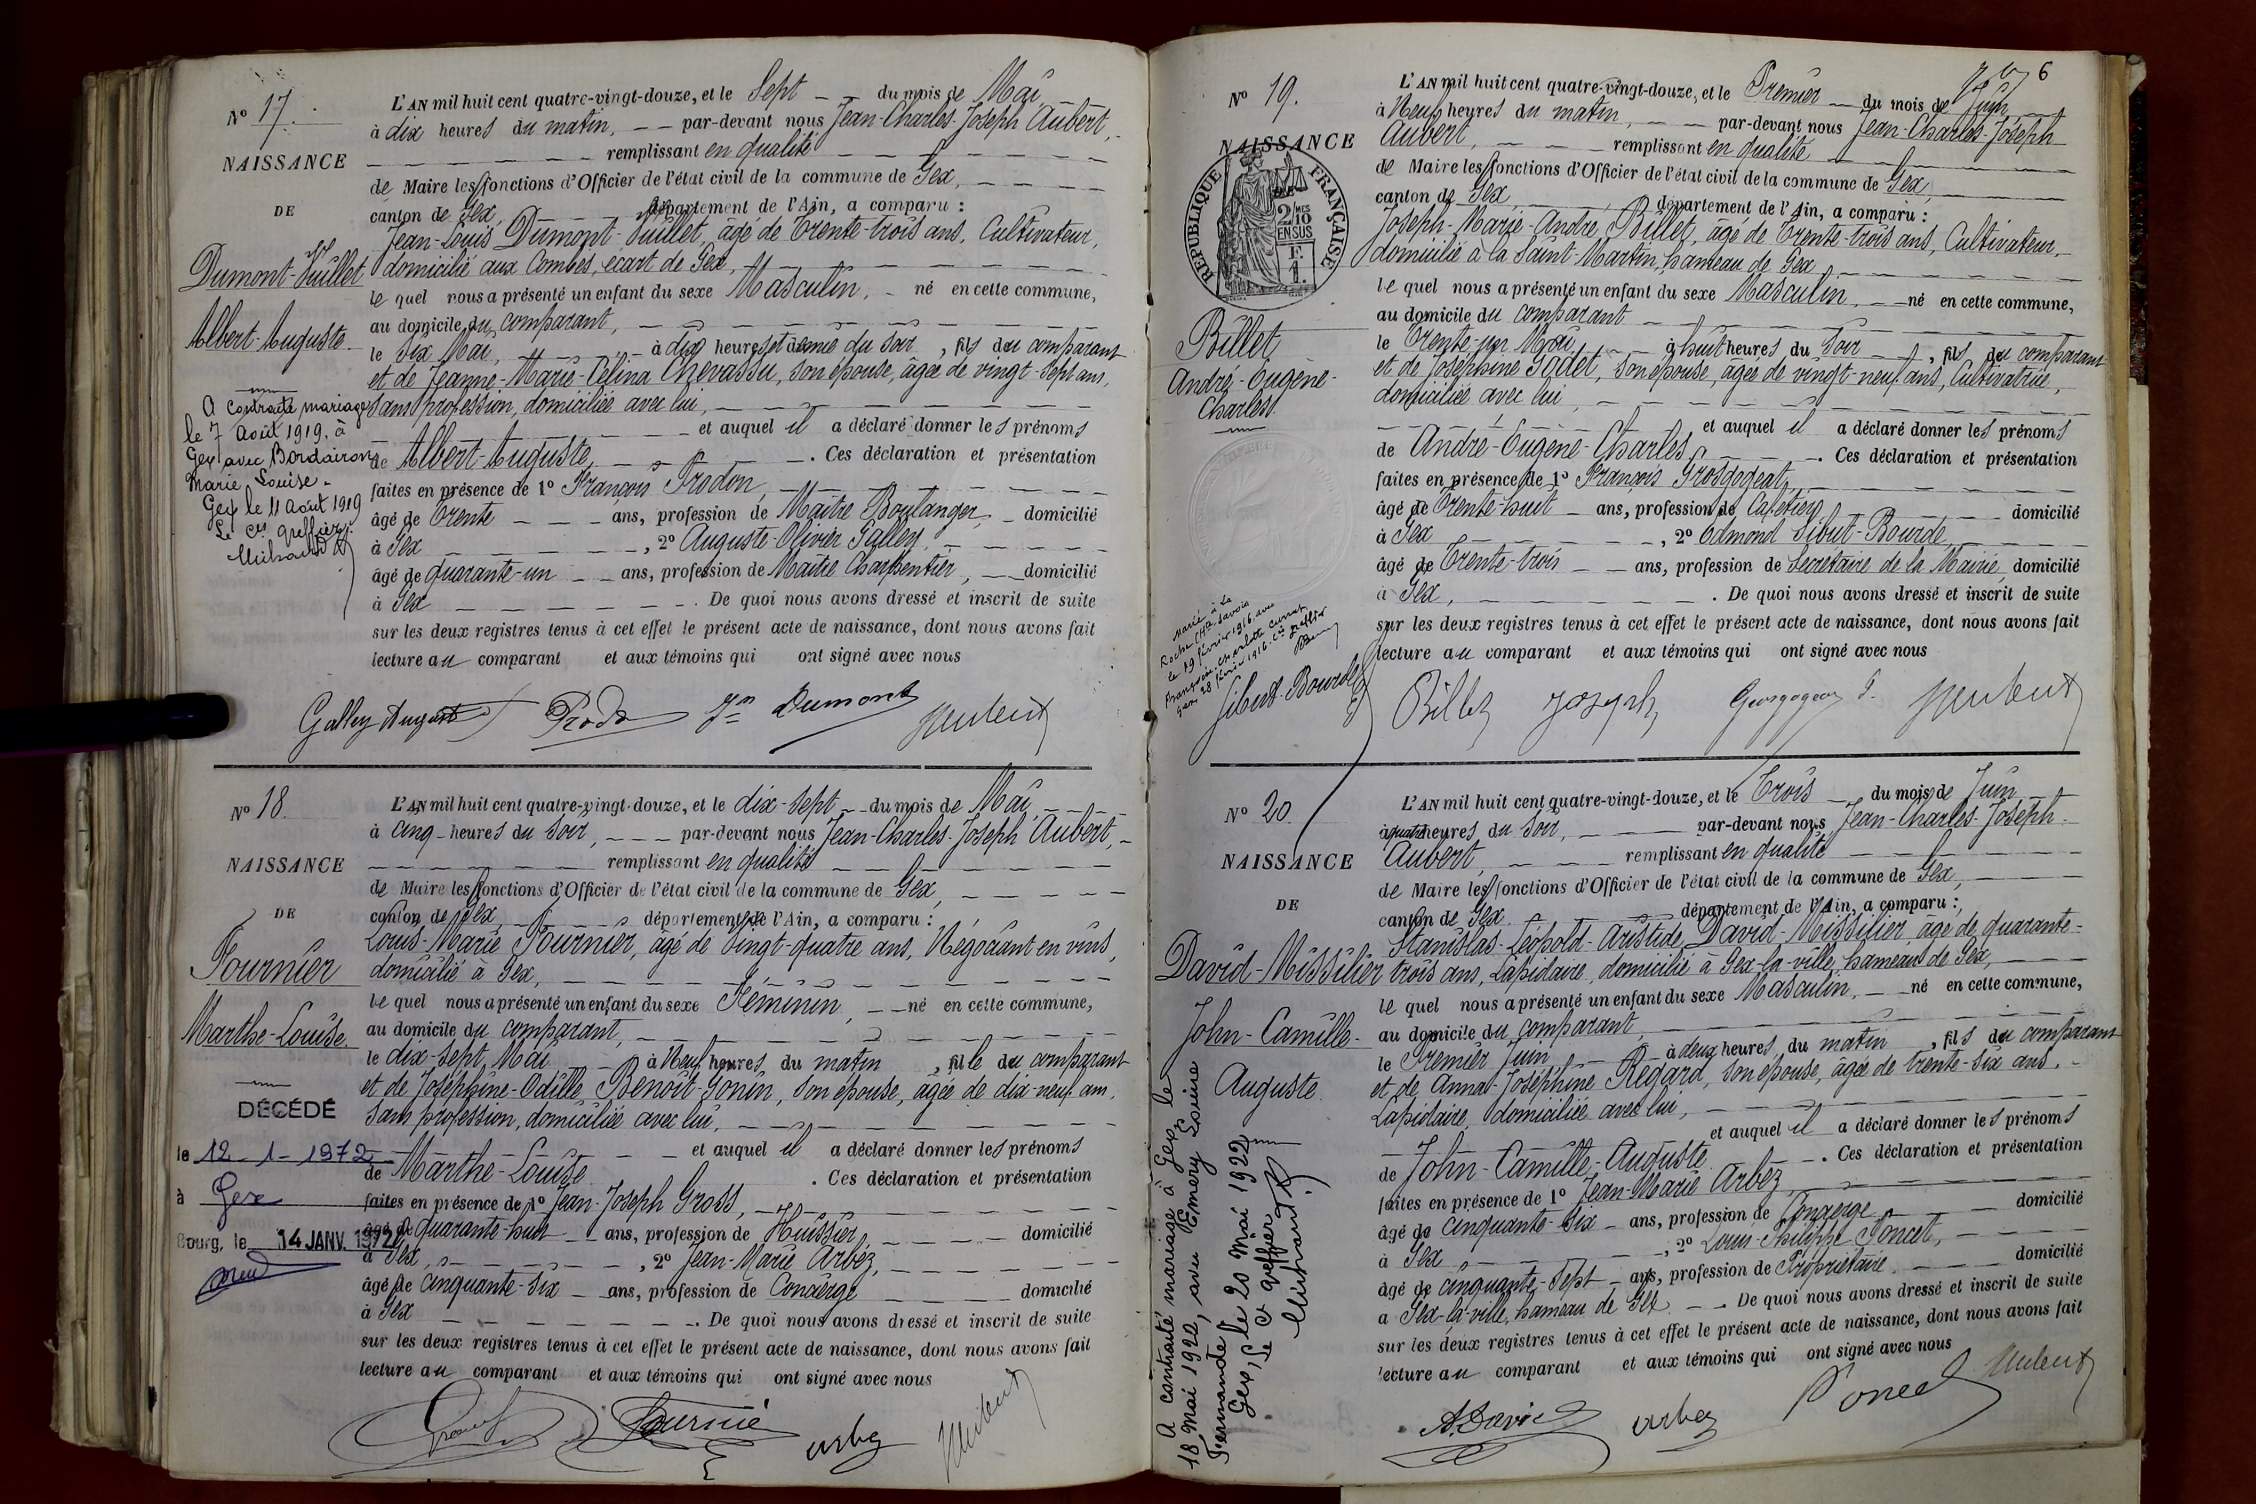 N° 17.
NAISSANCE
DE
Dumont-Vuillet
Albert-Auguste.
A contracté mariage
le 7 Août 1919, à
Gex avec Bordairon
Marie Louise.
Gex le 11 août 1919
Le Cis greffier
L'AN mil huit cent quatre-vingt-douze, et le Sept du mois de Mai,
à dix heures du matin, par-devant nous Jean-Charles-Joseph Aubert,
remplissant en qualité
de Maire les fonctions d'Officier de l'état civil de la commune de Gex,
canton de Gex, département de l'Ain, a comparu :
Jean-Louis Dumont-Vuillet, âgé de Trente-trois ans, Cultivateur,
domicilié aux Combes, écart de Gex,
le quel nous a présenté un enfant du sexe Masculin, né en cette commune,
au domicile du comparant,
le Six Mai, à dix heures et demie du soir, fils du comparant
et de Jeanne-Marie-Célina Chevassu, son épouse, âgée de vingt-sept ans,
sans profession, domiciliée avec lui,
et auquel il a déclaré donner les prénoms
de Albert-Auguste. Ces déclaration et présentation
faites en présence de 1° François Prodon,
âgé de Trente ans, profession de Maître Boulanger, domicilié
à Gex, 2° Auguste-Olivier Galley,
âgé de quarante-un ans, profession de Maître Charpentier, domicilié
à Gex. De quoi nous avons dressé et inscrit de suite
sur les deux registres tenus à cet effet le présent acte de naissance, dont nous avons fait
lecture au comparant et aux témoins qui ont signé avec nous
Galley August Prodon Jn Dumont Aubert
N° 18.
NAISSANCE
DE
Fournier
Marthe-Louise.
DÉCÉDÉ
le 12-1-1972
à Gex
Bourg, le 14 JANV. 1972
L'AN mil huit cent quatre-vingt-douze, et le dix-sept du mois de Mai,
à cinq heures du soir, par-devant nous Jean-Charles-Joseph Aubert,
remplissant en qualité
de Maire les fonctions d'Officier de l'état civil de la commune de Gex,
canton de Gex département de l'Ain, a comparu :
Louis-Marie Fournier, âgé de Vingt-quatre ans, Négociant en vins,
domicilié à Gex,
le quel nous a présenté un enfant du sexe Féminin, né en cette commune,
au domicile du comparant,
le dix-sept Mai à Neuf heures du matin, fille du comparant
et de Joséphine-Odille Benoit-Gonin, son épouse, âgée de dix-neuf ans,
sans profession, domiciliée avec lui,
et auquel il a déclaré donner les prénoms
de Marthe-Louise. Ces déclaration et présentation
faites en présence de 1° Jean-Joseph Gross,
âgé de quarante-huit ans, profession de Huissier, domicilié
à Gex, 2° Jean-Marie Arbez,
âgé de cinquante-six ans, profession de Concierge domicilié
à Gex. De quoi nous avons dressé et inscrit de suite
sur les deux registres tenus à cet effet le présent acte de naissance, dont nous avons fait
lecture au comparant et aux témoins qui ont signé avec nous
Fournier arbez Aubert
6
N° 19.
NAISSANCE
RÉPUBLIQUE FRANÇAISE
2/10 MES
EN SUS
Billet
André-Eugène-
Charles.
Marié à La
Roche (Hte Savoie
le 19 février 1916 avec
Françoise Charlotte Curvat
Gex 28 février 1916. Cis greffier
L'AN mil huit cent quatre-vingt-douze, et le Premier du mois de Juin,
à Neuf heures du matin, par-devant nous Jean-Charles-Joseph
Aubert, remplissant en qualité
de Maire les fonctions d'Officier de l'état civil de la commune de Gex,
canton de Gex, département de l'Ain, a comparu :
Joseph-Marie-André Billet, âgé de Trente-trois ans, Cultivateur,
domicilié à la Saint-Martin, hameau de Gex,
le quel nous a présenté un enfant du sexe Masculin, né en cette commune,
au domicile du comparant
le Trente-un Mai, à huit heures du soir, fils du comparant
et de Joséphine Godet, son épouse, âgée de vingt-neuf ans, Cultivatrice,
domiciliée avec lui,
et auquel il a déclaré donner les prénoms
de André-Eugène-Charles. Ces déclaration et présentation
faites en présence de 1° François Grosgogeat,
âgé de Trente-huit ans, profession de Cafetier domicilié
à Gex, 2° Edmond Sibut-Bourde,
âgé de Trente-trois ans, profession de Secrétaire de la Mairie, domicilié
à Gex,. De quoi nous avons dressé et inscrit de suite
sur les deux registres tenus à cet effet le présent acte de naissance, dont nous avons fait
lecture au comparant et aux témoins qui ont signé avec nous
Sibut-Bourde Billet Joseph Grosgogeat F. Aubert
N° 20.
NAISSANCE
DE
David-Missilier
John-Camille-
Auguste.
A contracté mariage à Gex, le
18 mai 1922, avec Emery Louise
Fernande.
Gex, le 20 mai 1922
Le Cis greffier
L'AN mil huit cent quatre-vingt-douze, et le Trois du mois de Juin
à quatre heures du soir, par-devant nous Jean-Charles-Joseph
Aubert, remplissant en qualité
de Maire les fonctions d'Officier de l'état civil de la commune de Gex,
canton de Gex département de l'Ain, a comparu :
Stanislas-Léopold-Aristide David-Missilier âgé de quarante-
trois ans, Lapidaire, domicilié à Gex-la-ville, hameau de Gex,
le quel nous a présenté un enfant du sexe Masculin, né en cette commune,
au domicile du comparant,
le Premier Juin, à deux heures du matin, fils du comparant
et de Anna-Joséphine Regard, son épouse, âgée de trente-six ans,
Lapidaire, domiciliée avec lui,
et auquel il a déclaré donner les prénoms
de John-Camille-Auguste. Ces déclaration et présentation
faites en présence de 1° Jean-Marie Arbez,
âgé de cinquante-six ans, profession de Concierge domicilié
à Gex, 2° Louis-Philippe Poncet,
âgé de cinquante-sept ans, profession de Propriétaire domicilié
à Gex-la-ville, hameau de Gex. De quoi nous avons dressé et inscrit de suite
sur les deux registres tenus à cet effet le présent acte de naissance, dont nous avons fait
lecture au comparant et aux témoins qui ont signé avec nous
A. David arbez Poncet Aubert